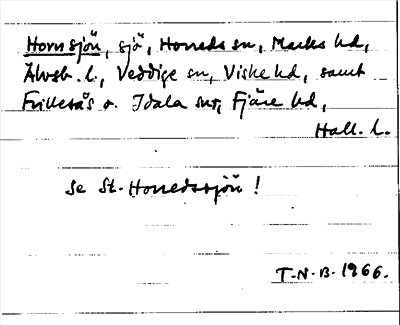 Hornsjön, sjö, Horreds sn, Marks hd,
Älvsb. l., Veddige sn, Viske hd, samt
Frillesås o. Idala snr, Fjäre hd,
Hall. l.
Se St. Horredssjön!
T-N-B-1966.